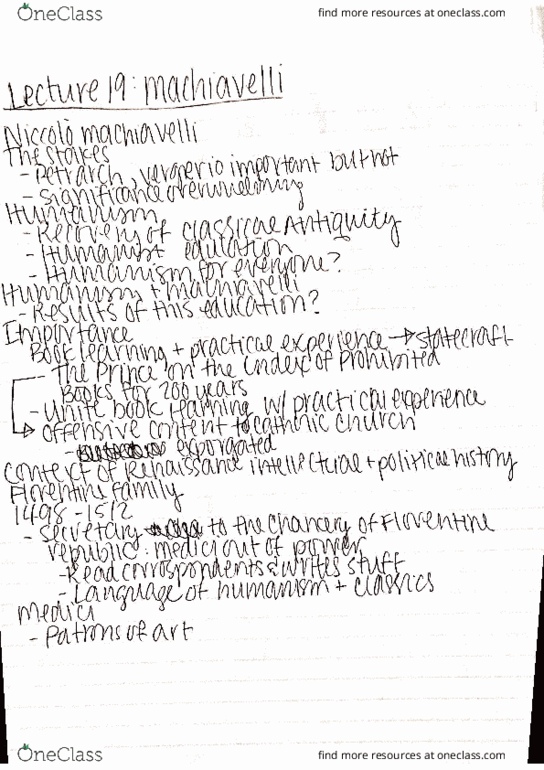 OneClass
find more resources at oneclass.com
Lecture 19: machiavelli
Niccolò machiavelli
The stakes
- Petrarch, vergerio important but not
- significance overwhelming
Humanism
- Recovery of classical Antiquity
- Humanist education
- Humanism for everyone?
Humanism + machiavelli
- Results of this education?
Importance
Book learning + practical experience → statecraft
- The Prince on the Index of Prohibited
Books for 200 years
- Unite book learning w/ practical experience
offensive content to catholic church
- exporgated
context of Renaissance intellectual + political history
Florentine family
1498 - 1512
- secretary to the chancery of Florentine
republic: medici out of power
- Read correspondents & writes stuff
- Language of humanism + classics
medici
- Patrons of art
OneClass
find more resources at oneclass.com